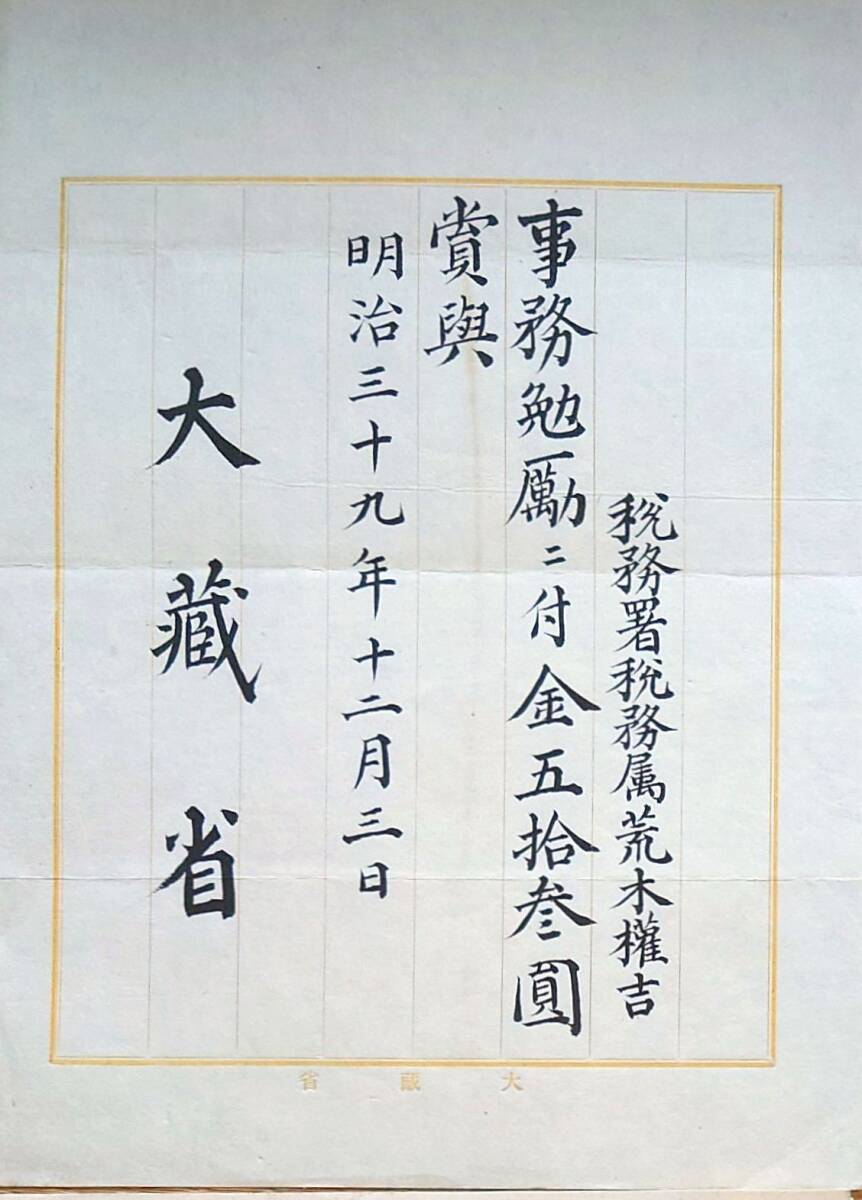 税務署税務属荒木權吉
事務勉勵ニ付金五拾叁圓
賞與
明治三十九年十二月三日
大藏省
大藏省